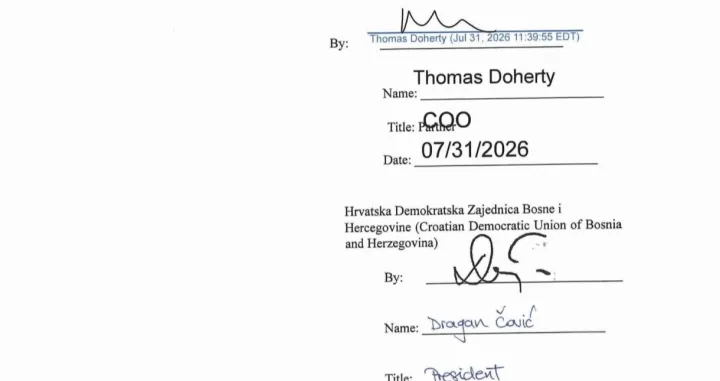 By:
Thomas Doherty (Jul 31, 2026 11:39:55 EDT)
Name: Thomas Doherty
Title: Partner COO
Date: 07/31/2026
Hrvatska Demokratska Zajednica Bosne i
Hercegovine (Croatian Democratic Union of Bosnia
and Herzegovina)
By:
Name: Dragan Čović
Title: President